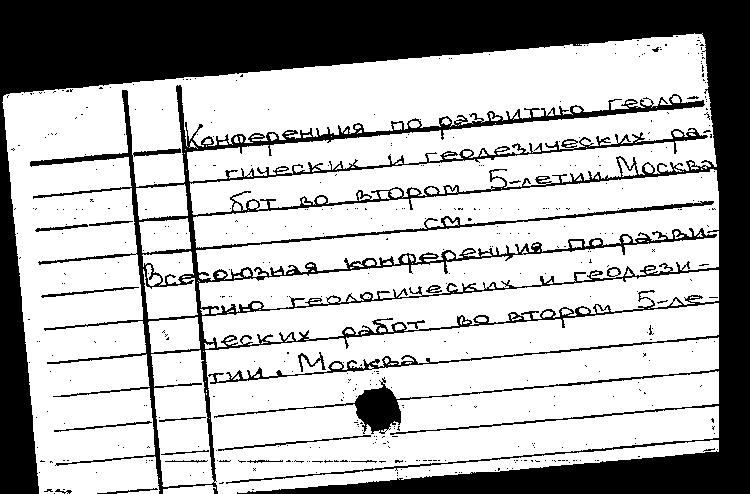 Конференция по развитию геоло-
гических и геодезических ра-
бот во втором 5-летии. Москва
см.
Всесоюзная конференция по разви-
тию геологических и геодези-
ческих работ во втором 5-ле-
тии. Москва.